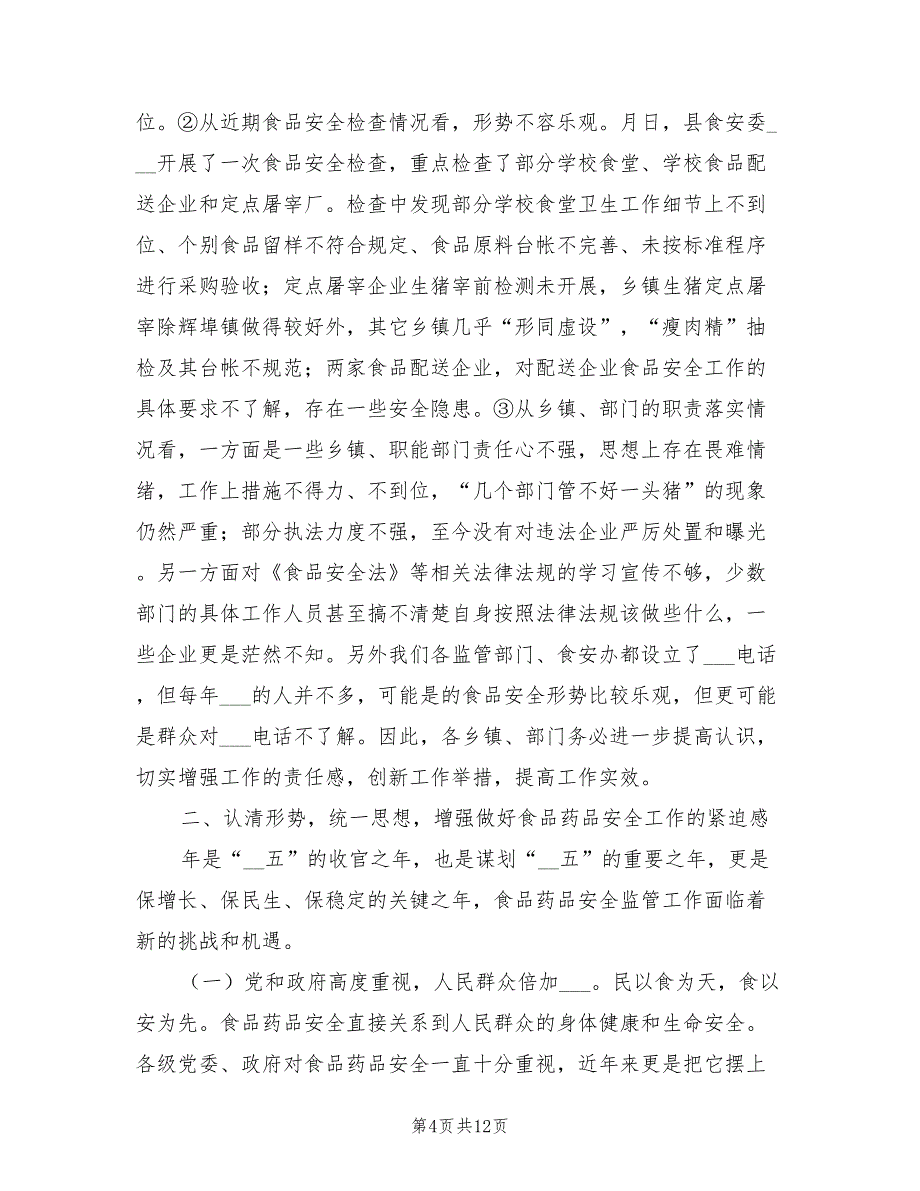 位。②从近期食品安全检查情况看，形势不容乐观。月日，县食安委_
__开展了一次食品安全检查，重点检查了部分学校食堂、学校食品配
送企业和定点屠宰厂。检查中发现部分学校食堂卫生工作细节上不到
位、个别食品留样不符合规定、食品原料台帐不完善、未按标准程序
进行采购验收；定点屠宰企业生猪宰前检测未开展，乡镇生猪定点屠
宰除辉埠镇做得较好外，其它乡镇几乎“形同虚设”，“瘦肉精”抽
检及其台帐不规范；两家食品配送企业，对配送企业食品安全工作的
具体要求不了解，存在一些安全隐患。③从乡镇、部门的职责落实情
况看，一方面是一些乡镇、职能部门责任心不强，思想上存在畏难情
绪，工作上措施不得力、不到位，“几个部门管不好一头猪”的现象
仍然严重；部分执法力度不强，至今没有对违法企业严厉处置和曝光
。另一方面对《食品安全法》等相关法律法规的学习宣传不够，少数
部门的具体工作人员甚至搞不清楚自身按照法律法规该做些什么，一
些企业更是茫然不知。另外我们各监管部门、食安办都设立了___电话
，但每年___的人并不多，可能是的食品安全形势比较乐观，但更可能
是群众对___电话不了解。因此，各乡镇、部门务必进一步提高认识，
切实增强工作的责任感，创新工作举措，提高工作实效。
二、认清形势，统一思想，增强做好食品药品安全工作的紧迫感
年是“__五”的收官之年，也是谋划“__五”的重要之年，更是
保增长、保民生、保稳定的关键之年，食品药品安全监管工作面临着
新的挑战和机遇。
（一）党和政府高度重视，人民群众倍加___。民以食为天，食以
安为先。食品药品安全直接关系到人民群众的身体健康和生命安全。
各级党委、政府对食品药品安全一直十分重视，近年来更是把它摆上
第4页共12页